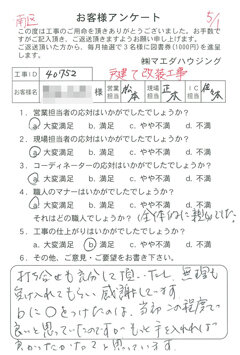 南区
お客様アンケート
5/1
この度は工事のご用命を頂きありがとうございました。お手数で
すがご記入頂き、ご返送頂きますようお願い申し上げます。
ご返送頂いた方から、毎月抽選で3名様に図書券(1000円)を進呈
します。
㈱マエダハウジング
工事ID 40752 戸建て改装工事
お客様名 様 営業担当 松本 現場担当 正木 IC担当 佐々木
1. 営業担当者の応対はいかがでしたでしょうか?
a 大変満足 b. 満足 c. やや不満 d. 不満
2. 現場担当者の応対はいかがでしたでしょうか?
a 大変満足 b. 満足 c. やや不満 d. 不満
3. コーディネーターの応対はいかがでしたでしょうか?
a 大変満足 b. 満足 c. やや不満 d. 不満
4. 職人のマナーはいかがでしたでしょうか?
a 大変満足 b. 満足 c. やや不満 d. 不満
それはどの職人でしょうか?(全体的に
5. 工事の仕上がりはいかがでしたでしょうか?
a. 大変満足 b 満足 c. やや不満 d. 不満
6. その他、ご意見・ご要望をお書き下さい。
打ち合せも充分して頂いたし、無理も
聞き入れてもらい感謝しています
bに○をつけたのは、当初この程度で
良いと思っていたのですがもっと手を入れれば
良かったかなと思っています。